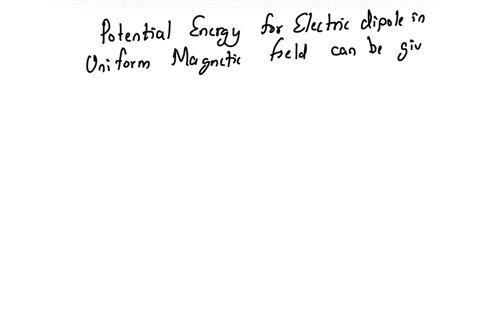 Potential Energy for Electric dipole in
Uniform Magnetic field can be giv